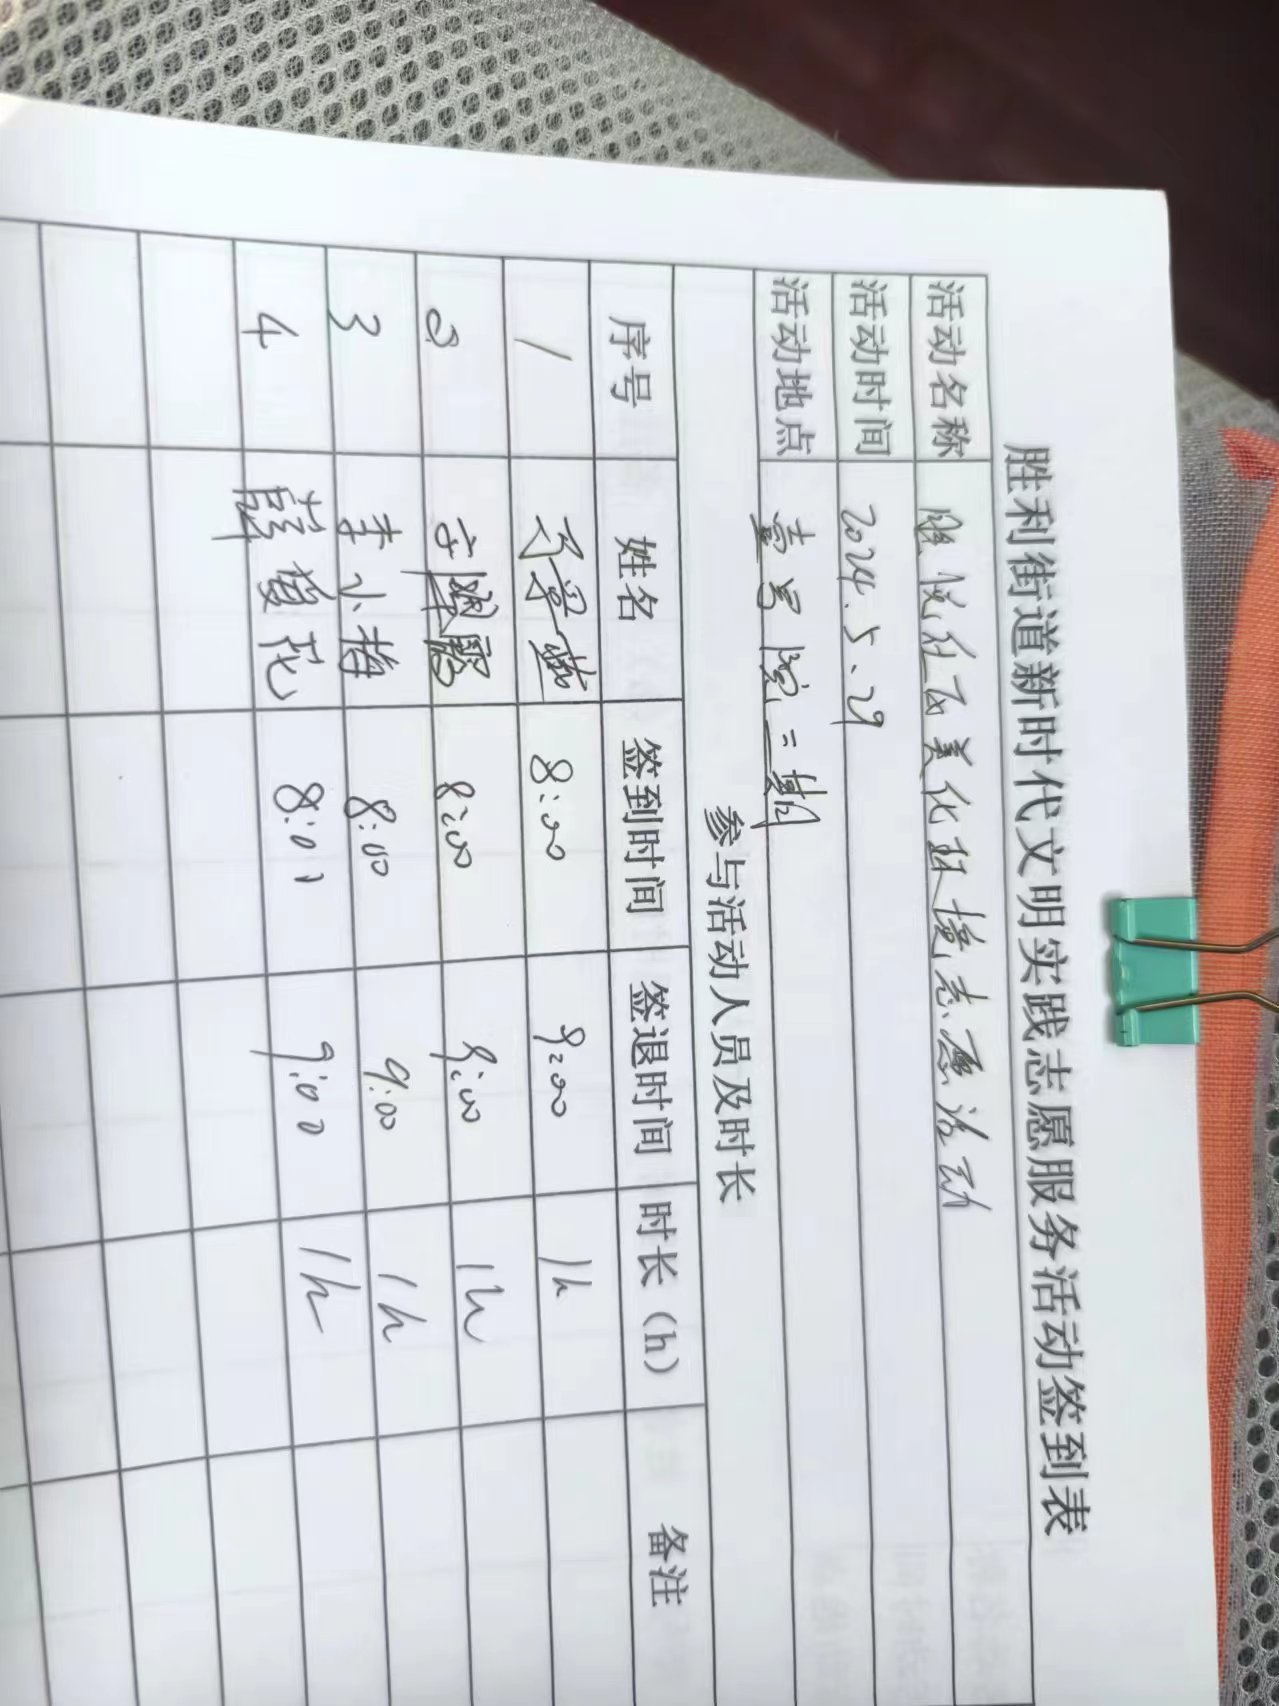 胜利街道新时代文明实践志愿服务活动签到表
活动名称 胜悦社区美化环境志愿活动
活动时间 2024.5.29
活动地点 壹号院二期
参与活动人员及时长
序号 姓名 签到时间 签退时间 时长(h) 备注
1 8:00 9:00 1h
2 8:00 9:00 1h
3 李小梅 8:00 9:00 1h
4 薛黄花 8:01 9:00 1h